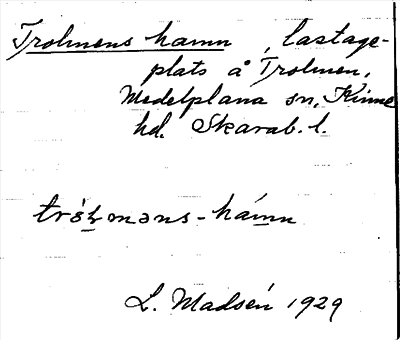 Trolmens hamn, lastage-
plats å Trolmen,
Medelplana sn, Kinne
hd. Skarab. l.
trólmǝns-hámn
L. Madsén 1929